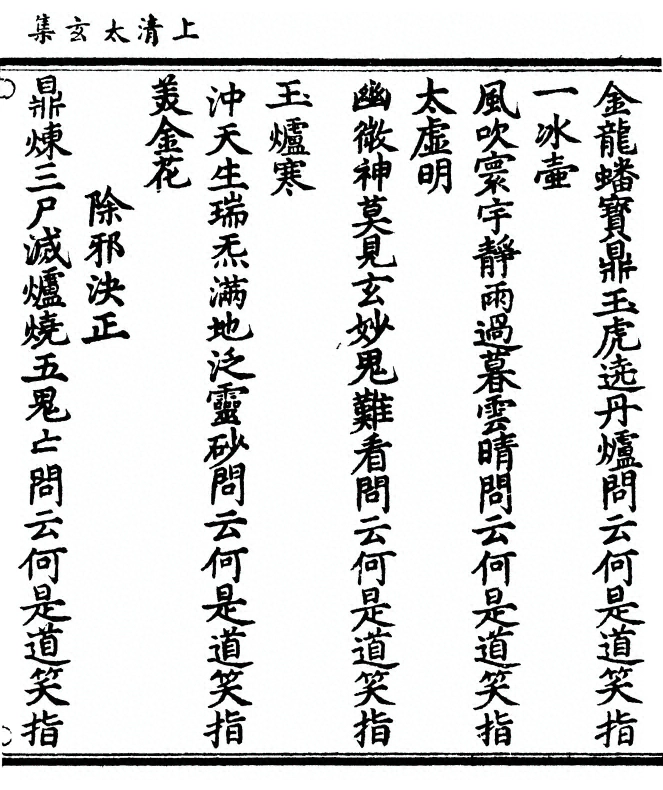 上清太玄集
金龍蟠寶鼎玉虎遶丹爐問云何是道笑指
一冰壷
風吹寰宇靜雨過暮雲晴問云何是道笑指
太虛明
幽微神莫見玄妙鬼難看問云何是道笑指
玉爐寒
沖天生瑞炁滿地泛靈砂問云何是道笑指
美金花
除邪決正
鼎煉三尸滅爐燒五鬼亡問云何是道笑指